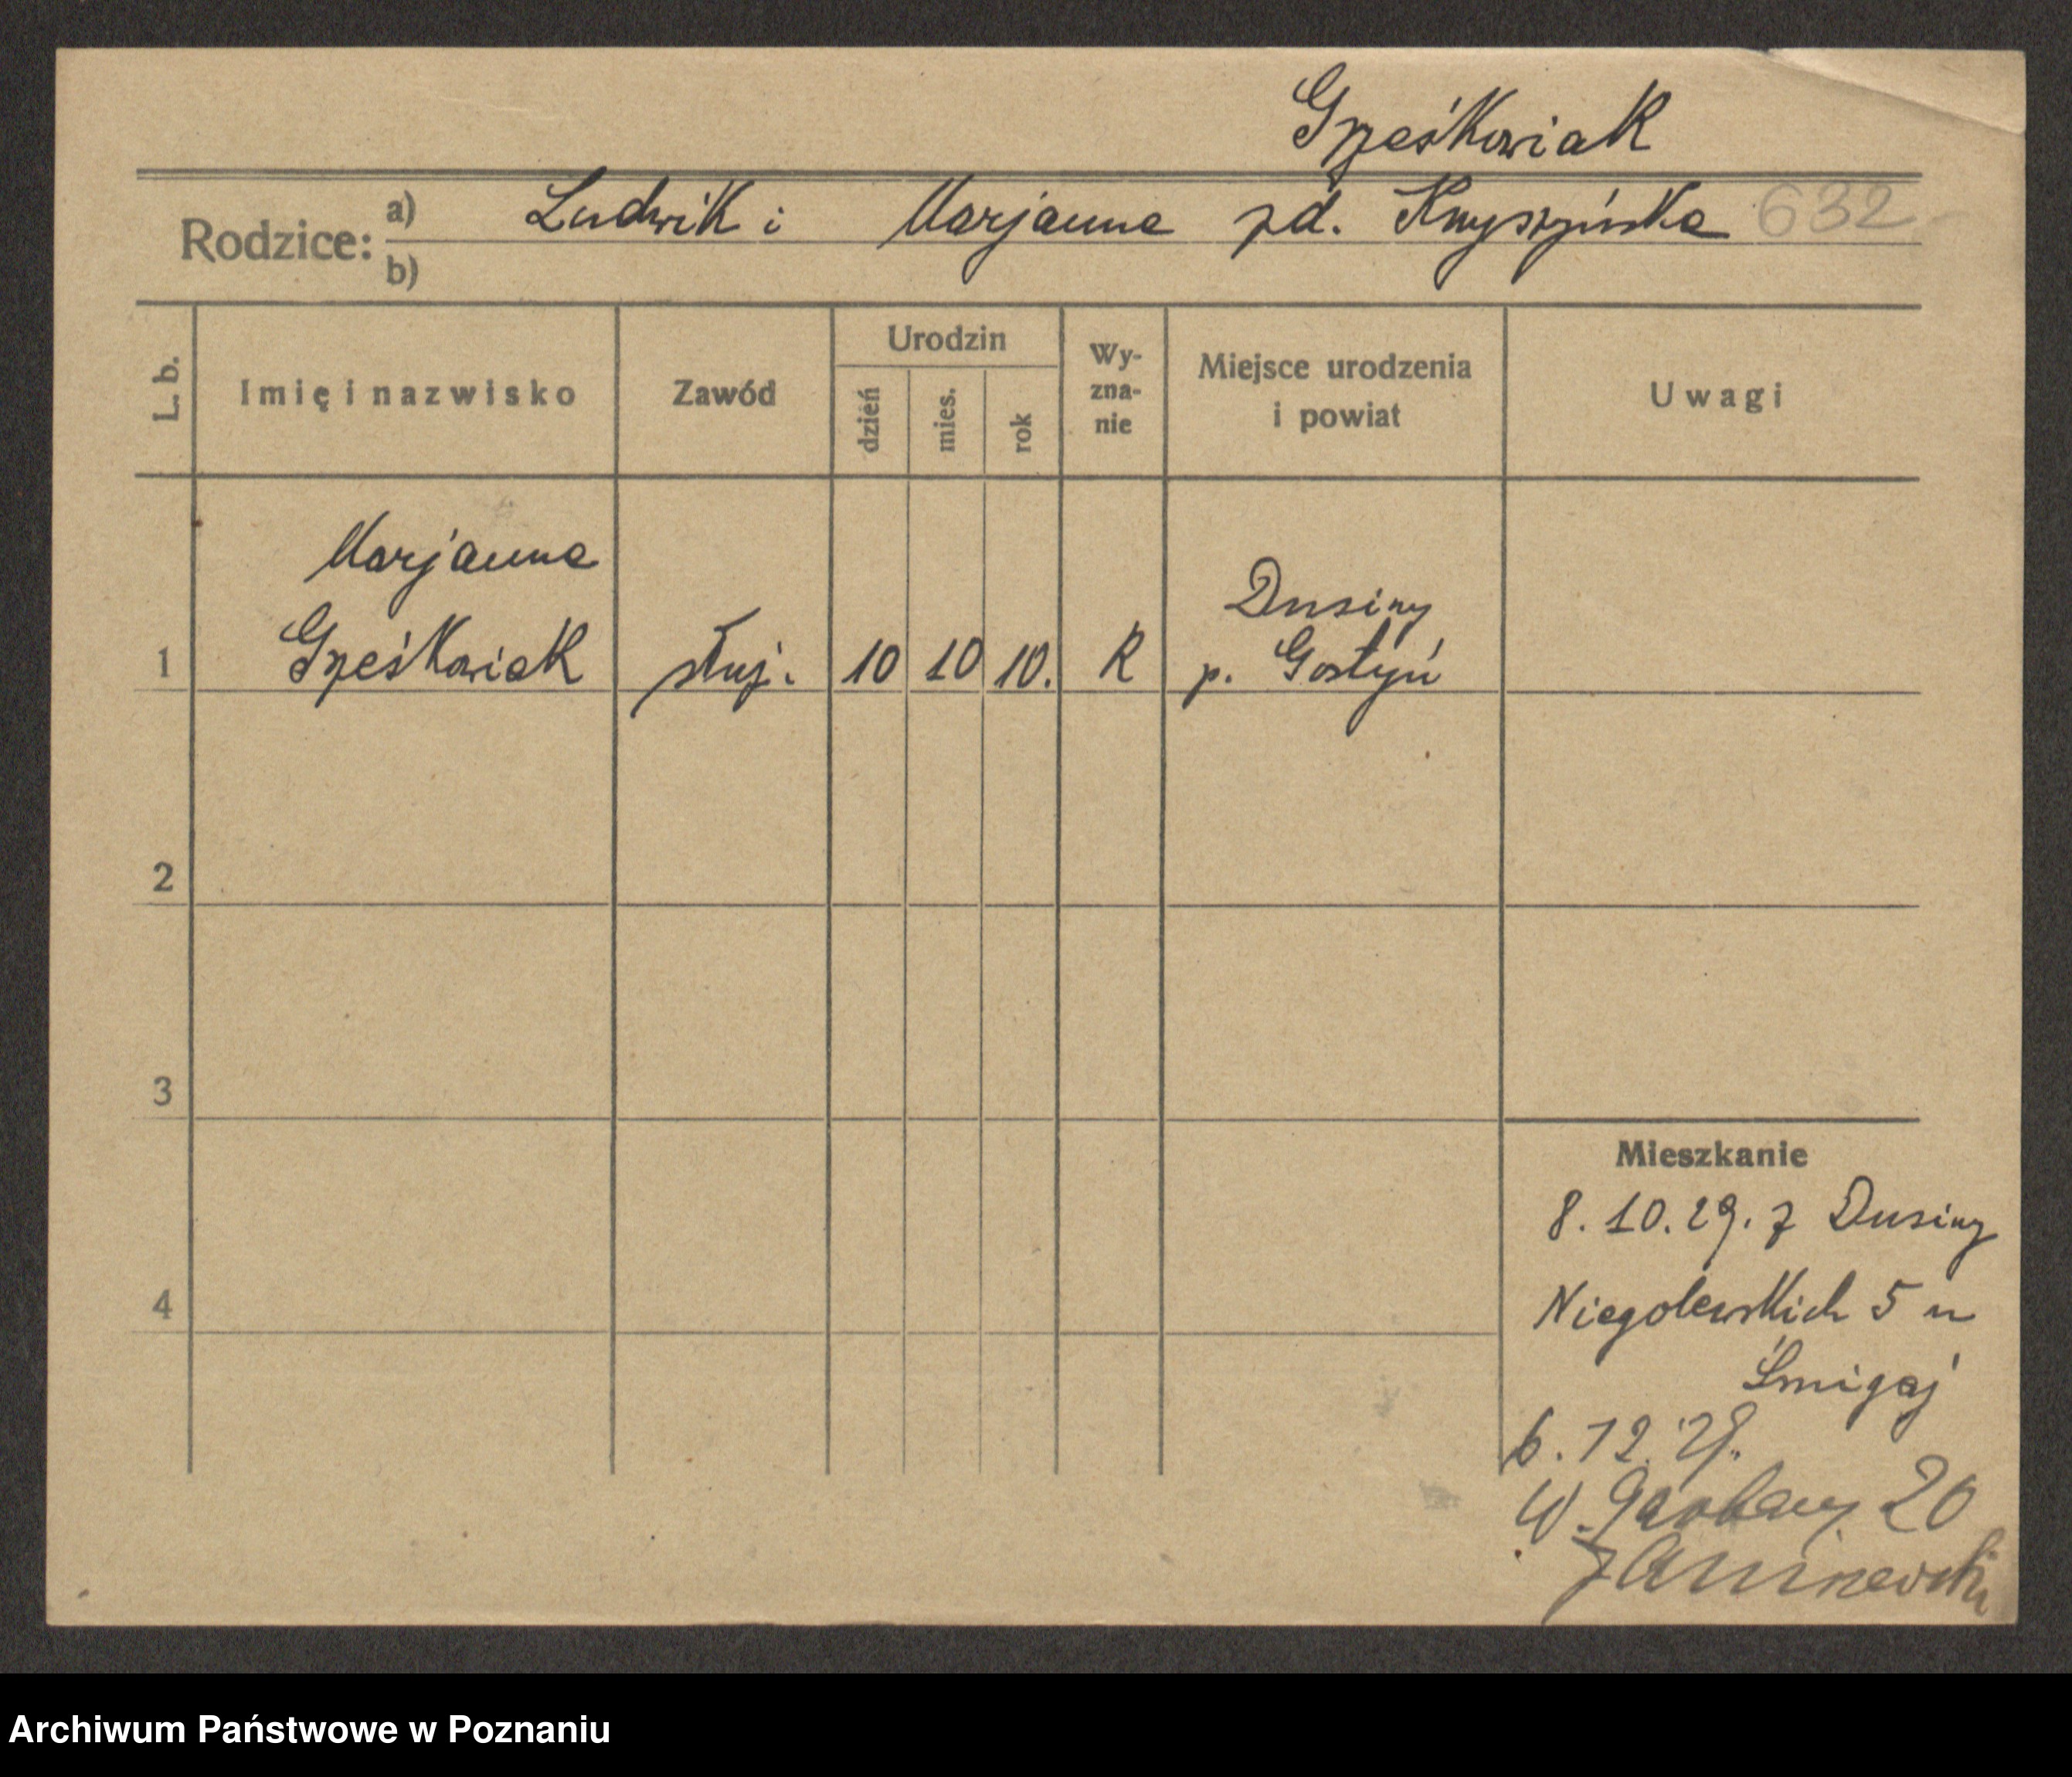 Grześkowiak
Rodzice: a) Ludwik i Marjanna zd. Knyszyńska 632
b)
L. b. Imię i nazwisko Zawód Urodzin dzień mies. rok Wyznanie Miejsce urodzenia i powiat Uwagi
Marjanna
Dusiny
1 Grześkowiak służ. 10 10 10. R p. Gostyń
2
3
Mieszkanie
8.10.29. z Dusiny
4
Niegolewskich 5 u
Śmigaj
6.12.29.
W. Garbary 20
Archiwum Państwowe w Poznaniu